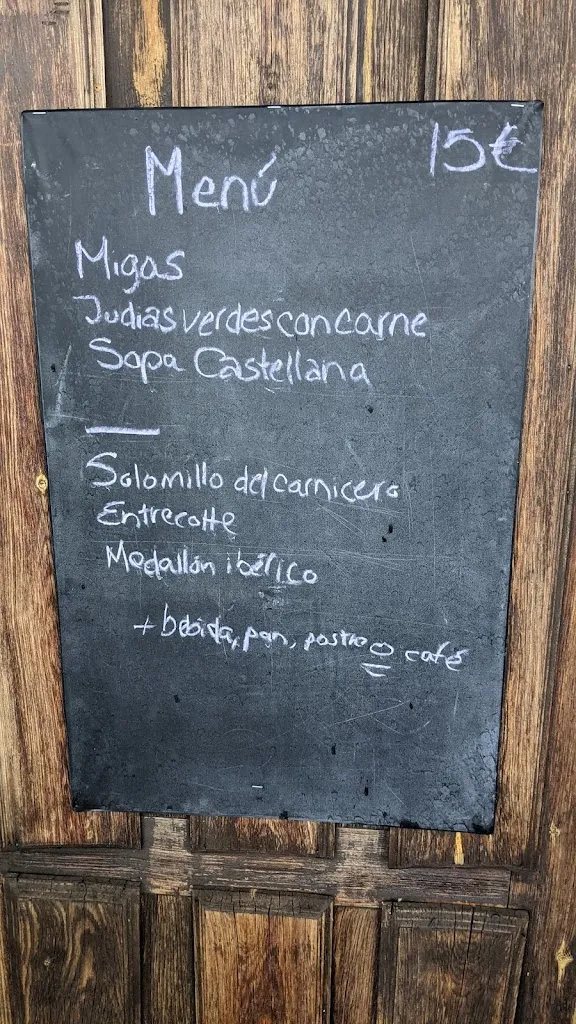 Menú
15€
Migas
Judias verdes con carne
Sopa Castellana
Solomillo del carnicero
Entrecotte
Medallón ibérico
+ bebida, pan, postre o café